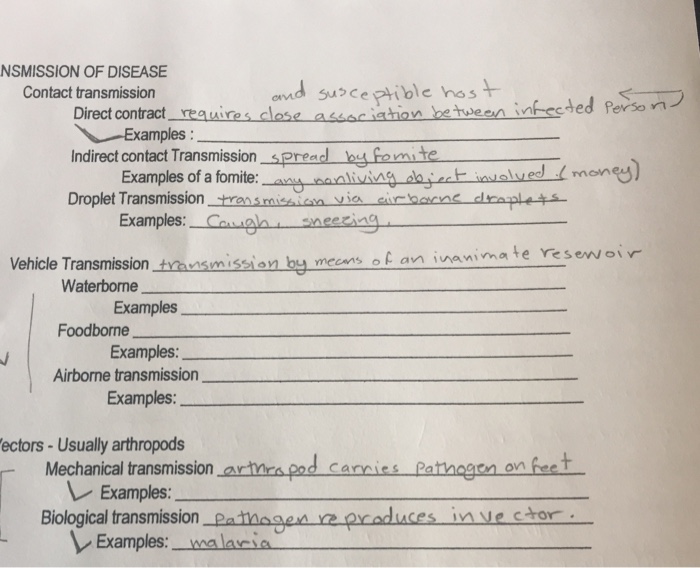 NSMISSION OF DISEASE
Contact transmission and susceptible host
Direct contract requires close association between infected Person
Examples :
Indirect contact Transmission spread by fomite
Examples of a fomite: any nonliving object involved (money)
Droplet Transmission transmission via airborne droplets
Examples: Cough, sneezing.
Vehicle Transmission transmission by means of an inanimate reservoir
Waterborne
Examples
Foodborne
Examples:
Airborne transmission
Examples:
ectors - Usually arthropods
Mechanical transmission arthropod carries Pathogen on feet
Examples:
Biological transmission Pathogen reproduces in vector.
Examples: malaria